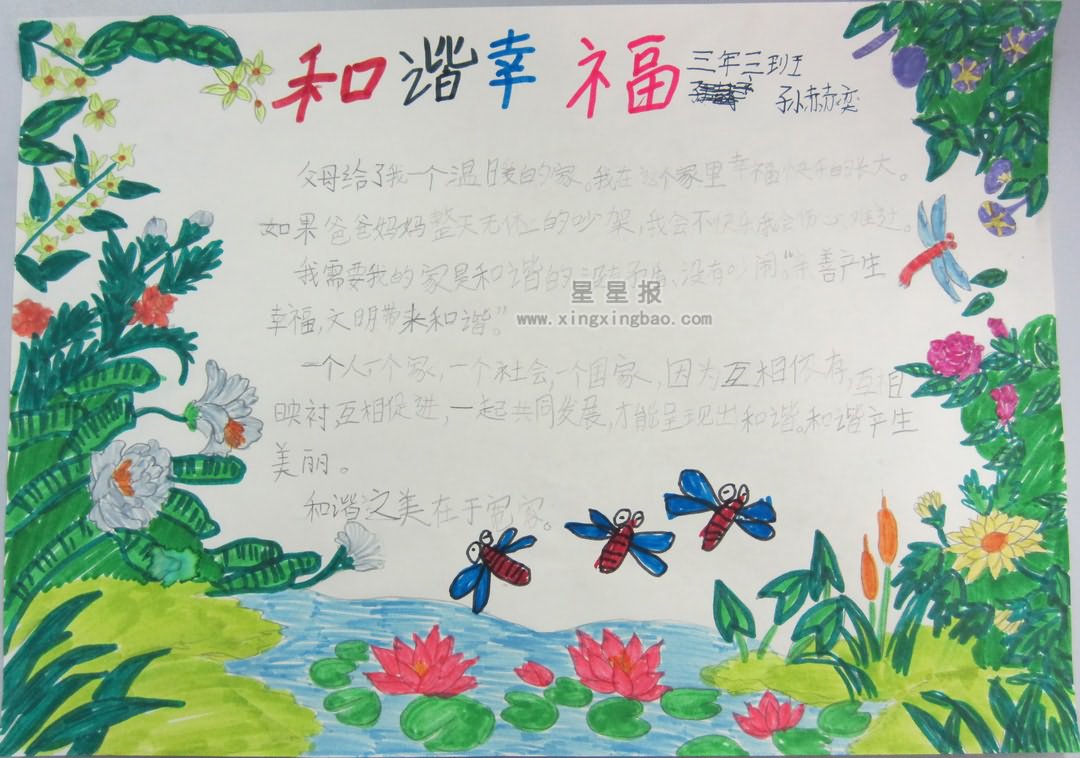 和谐幸福
三年三班
孙赫奕
父母给了我一个温暖的家。我在这个家里幸福快乐的长大。
如果爸爸妈妈整天无休止的吵架,我会不快乐我会伤心难过。
我需要我的家是和谐的没有 没有吵闹。“ 善产生
幸福,文明带来和谐。”
星星报
www.xingxingbao.com
一个人,个家,一个社会,一个国家,因为互相依存,互相
映衬互相促进,一起共同发展,才能呈现出和谐。和谐产生
美丽。
和谐之美在于 家。